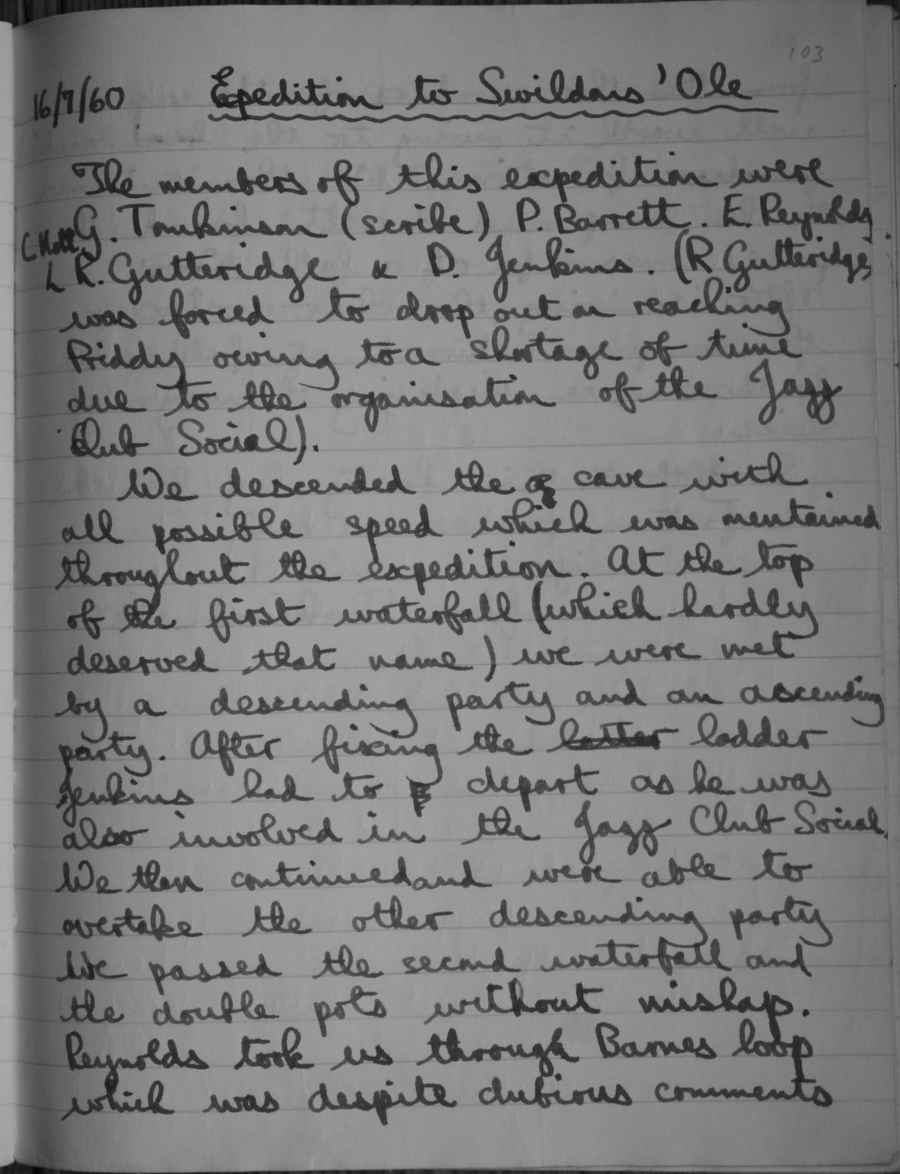 103
16/9/60 Expedition to Swildons 'Ole
The members of this expedition were
G. Tomkinson (scribe) P. Barrett. E. Reynolds,
R. Gutteridge & D. Jenkins. (R Gutteridge
was forced to drop out on reaching
Priddy owing to a shortage of time
due to the organisation of the Jazz
Club Social).
We descended the cave with
all possible speed which was mentained
throughout the expedition. At the top
of the first waterfall (which hardly
deserved that name) we were met
by a descending party and an ascending
party. After fixing the latter ladder
Jenkins had to depart as he was
also involved in the Jazz Club Social.
We then continued and were able to
overtake the other descending party
We passed the second waterfall and
the double pots without mishap.
Reynolds took us through Barnes loop
which was despite dubious comments